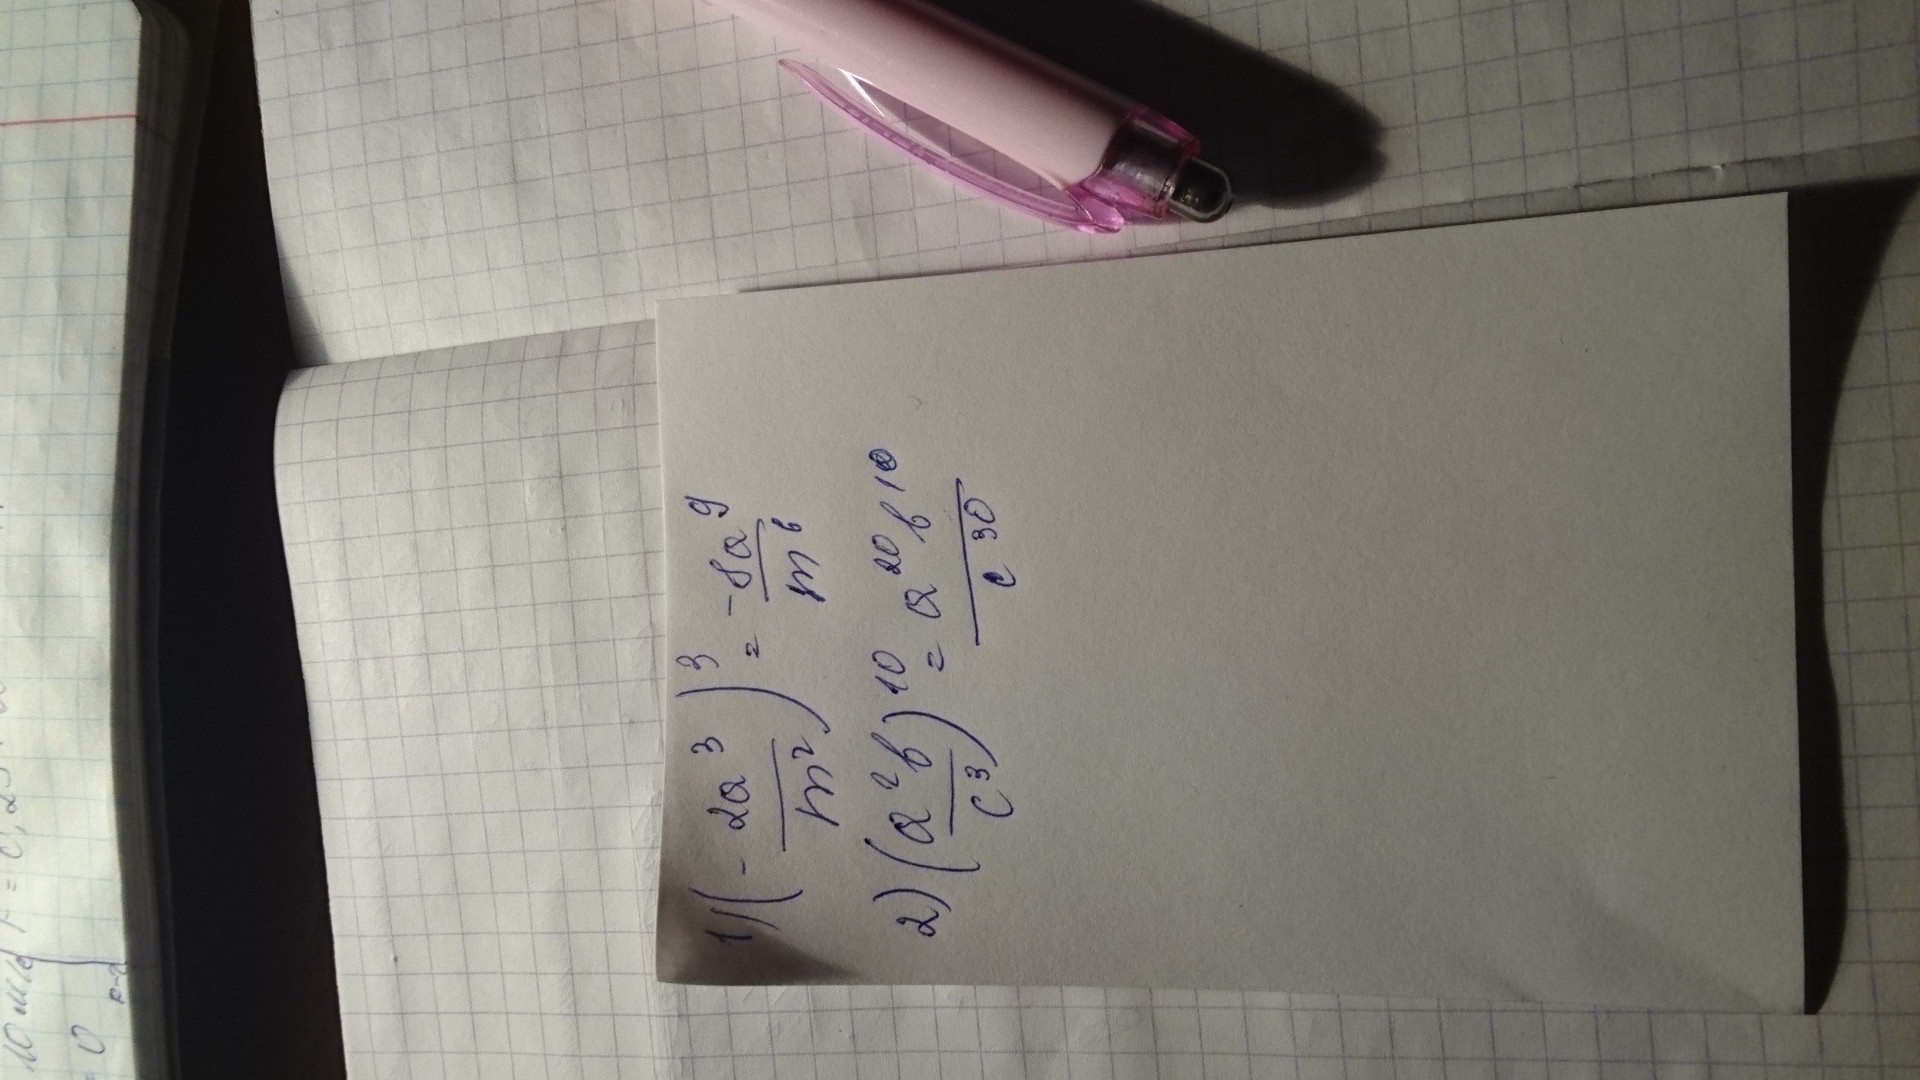 1) (- 2a³/m²)³ = -8a⁹/m⁶
2) (a²b/c³)¹⁰ = a²⁰b¹⁰/c³⁰